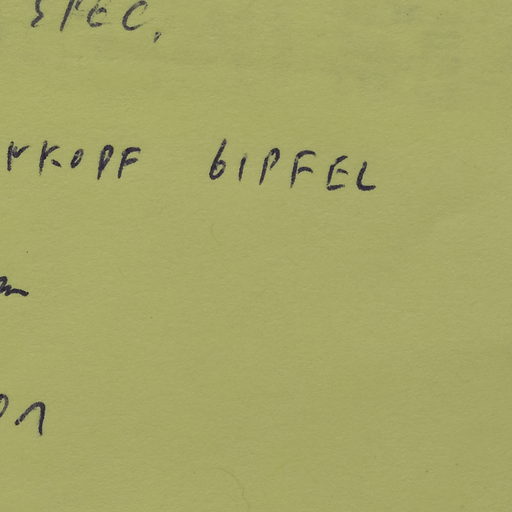 SPEC.
RKOPF GIPFEL
m
01